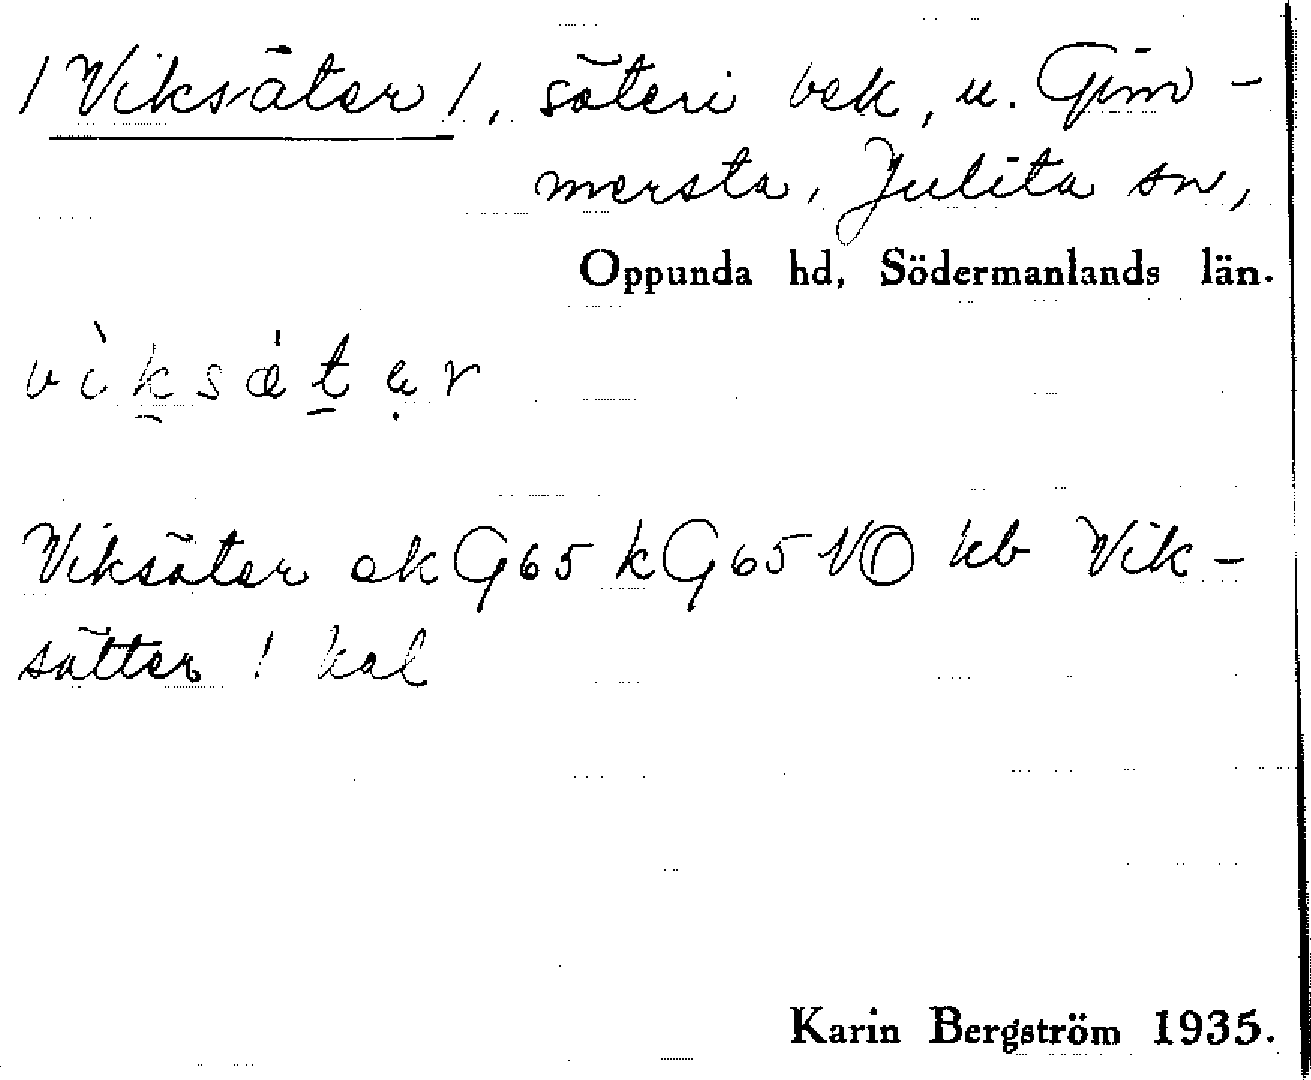 /Viksäter/, säteri bek, u. Gim-
mersta, Julita sn,
Oppunda hd, Södermanlands län.
vìksǽtər
Viksäter ek G65 k G65 VO kb Vik-
sätter ! kal
Karin Bergström 1935.